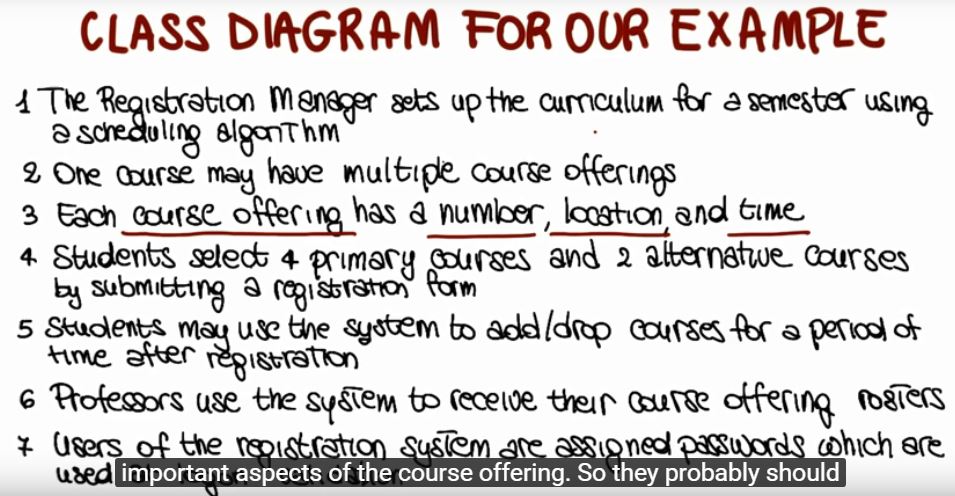 CLASS DIAGRAM FOR OUR EXAMPLE
1 The Registration Manager sets up the curriculum for a semester using
a scheduling algorithm
2 One course may have multiple course offerings
3 Each course offering has a number, location, and time
4 Students select 4 primary courses and 2 alternative courses
by submitting a registration form
5 Students may use the system to add/drop courses for a period of
time after registration
6 Professors use the system to receive their course offering rosters
7 Users of the registration system are assigned passwords which are
used
important aspects of the course offering. So they probably should